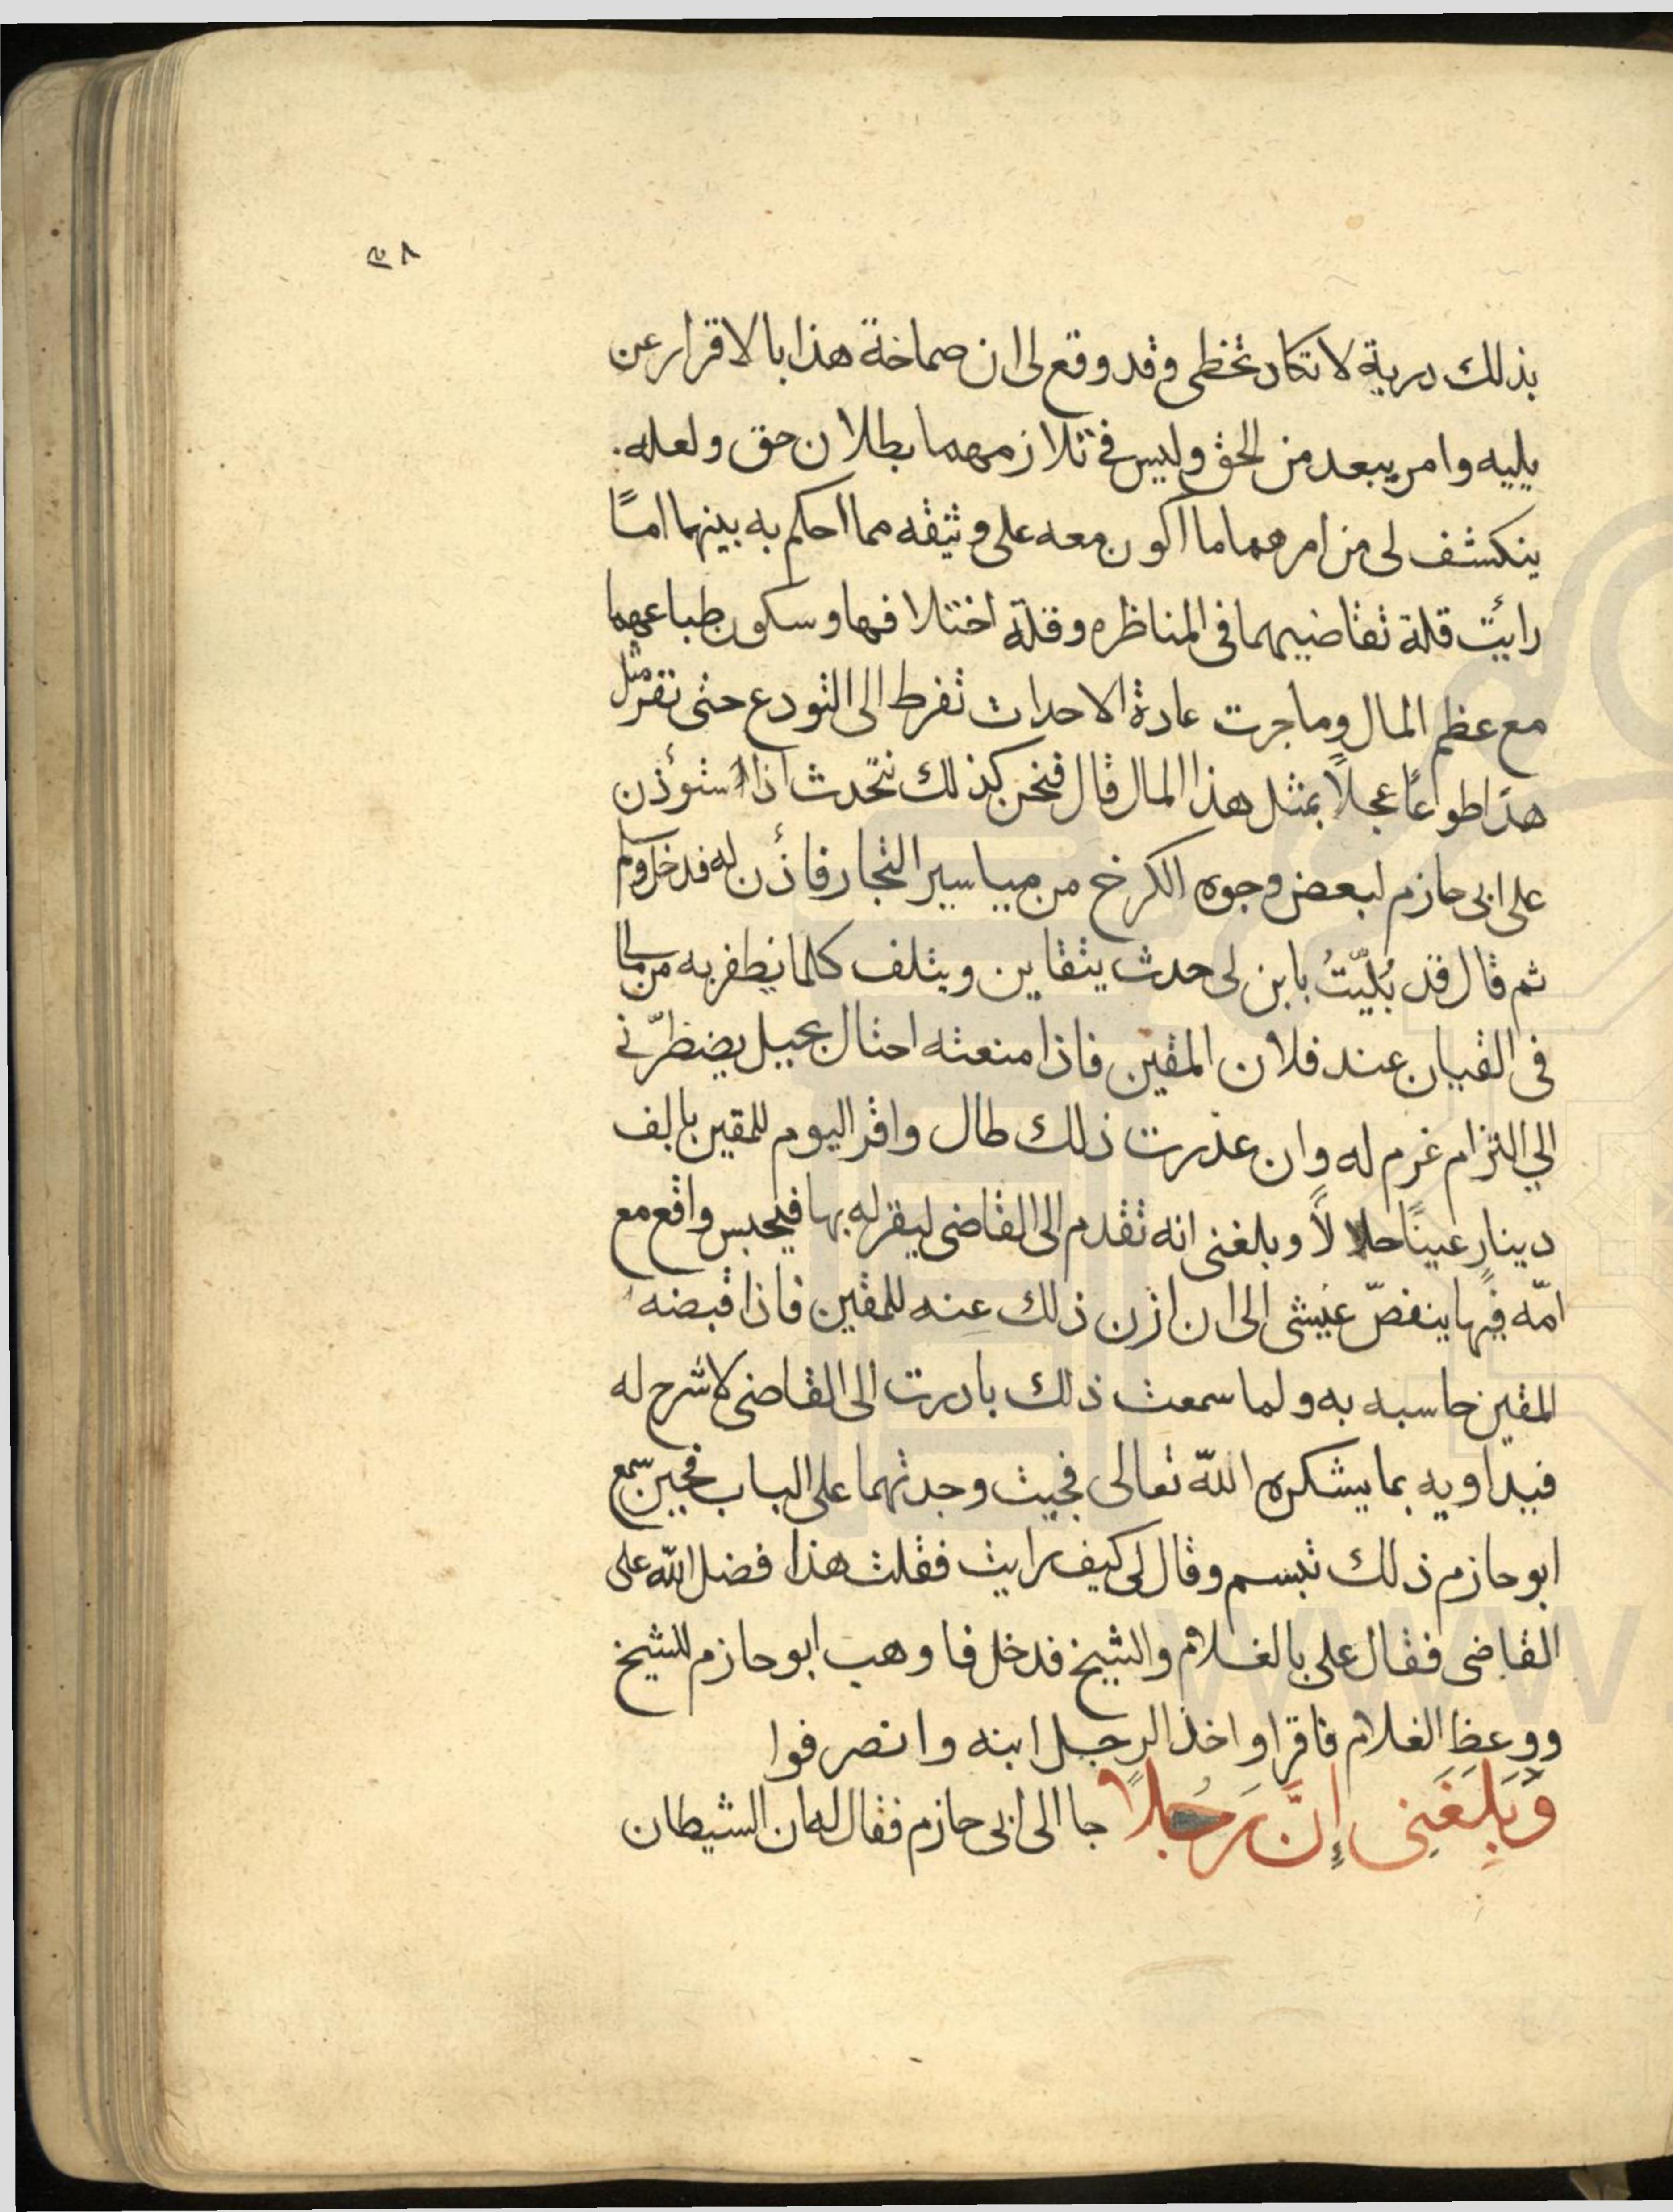 بذلك دربة لا تكاد تخطى وقد وقع لى ان صماخة هذا بالاقرار عن
يليه وامر يبعد من الحق وليس فى تلازمهما بطلان حق ولعله.
ينكشف لى من امرهما ما اكون معه على وثيقه مما احكم به بينهما امّا
رايت قلة تقاضيهما فى المناظره وقلة اختلافهما وسكون طباعهما
مع عظم المال وما جرت عادة الاحداث تفرط الى التودع حتى تقر مثل
هذا طواعًا عجلًا بمثل هذا المال قال فنحن كذلك نتحدث اذا استوذن
على ابى حازم لبعض وجوه الكرخ من مياسير التجار فاذن له فدخل وسلم
ثم قال قد بُليّتُ بابن لى حدث يتقاين ويتلف كلما يظفر به من مالى
فى القيان عند فلان المقين فاذا منعته احتال بحيل يضطرّنى
الي التزام غرم له وان عذرت ذلك طال واقر اليوم للمقين بالف
دينارٍ عينًا حلالاً وبلغنى انه تقدم الى القاضى ليقر له بها فيحبس واقع مع
امّه فيها ينغصّ عيشى الى ان ازن ذلك عنه للمقين فاذا قبضه
المقين حاسبه به ولما سمعت ذلك بادرت الى القاضى لاشرح له
فيداويه بما يشكره اللّه تعالى فجيت وجدتهما على الباب فحين سمع
ابو حازم ذلك تبسم وقال لى كيف رايت فقلت هذا فضل اللّه على
القاضى فقال على بالغلام والشيخ فدخل فاوهب ابو حازم للشيخ
ووعظ الغلام فاقرا واخذ الرجل ابنه وانصرفوا
وَبَلَغَنِى إِنَّ رَجُلًا جا الى ابى حازم فقال له ان الشيطان